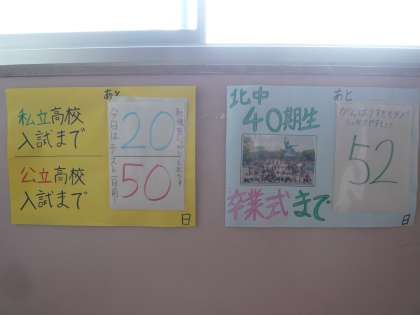 あと
私立高校
入試まで
20
公立高校
入試まで
50
日
今日はテスト1日前!
北中
40期生
あと
52
卒業式まで
日